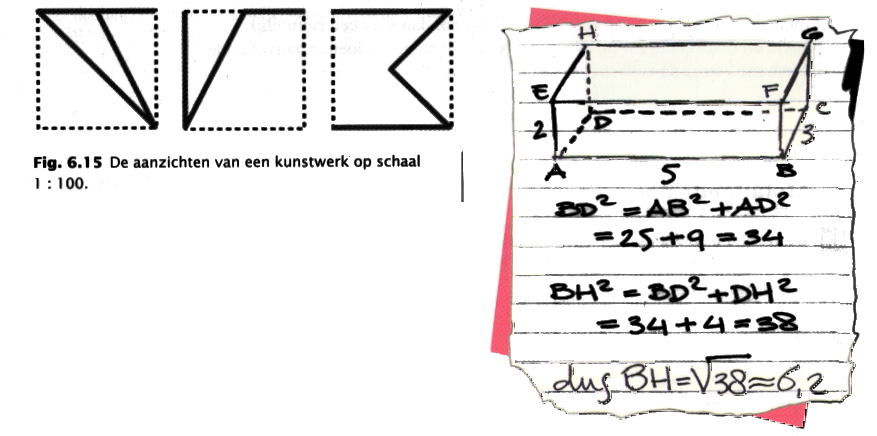 Fig. 6.15 De aanzichten van een kunstwerk op schaal
1 : 100.
H
G
E
F
D
C
2
3
A
5
B
BD² = AB² + AD²
= 25 + 9 = 34
BH² = BD² + DH²
= 34 + 4 = 38
dus BH = √38 ≈ 6,2